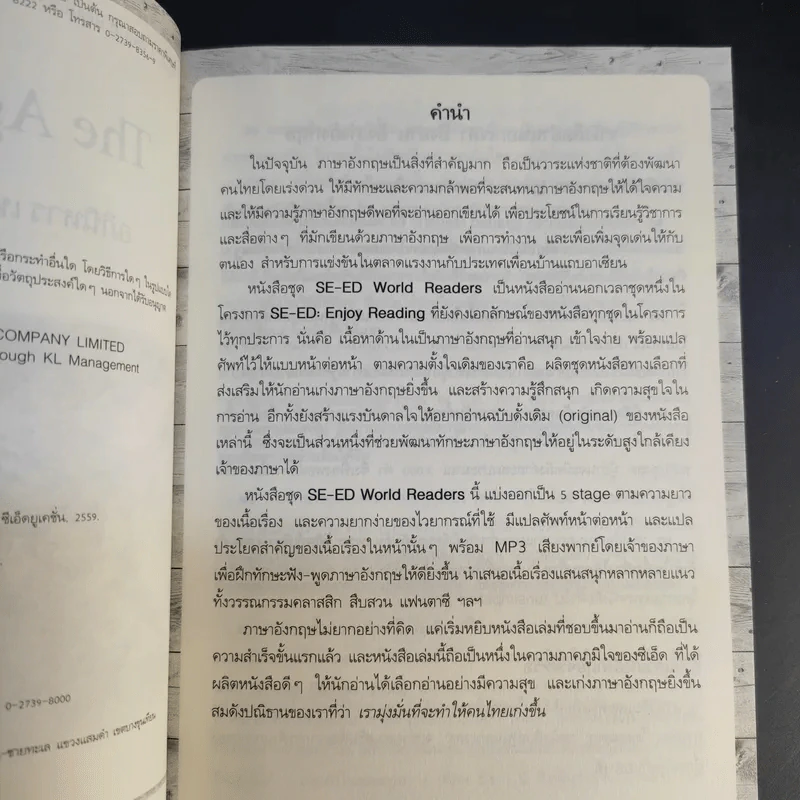 เป็นต้น กรุณาสอบถามราคาพิเศษที่
8222 หรือ โทรสาร 0-2739-8356-9
รือกระทำอื่นใด โดยวิธีการใดๆ ในรูปแบบใด
อวัตถุประสงค์ใดๆ นอกจากได้รับอนุญาต
COMPANY LIMITED
ough KL Management
ซีเอ็ดยูเคชั่น, 2559.
0-2739-8000
คำนำ
ในปัจจุบัน ภาษาอังกฤษเป็นสิ่งที่สำคัญมาก ถือเป็นวาระแห่งชาติที่ต้องพัฒนา
คนไทยโดยเร่งด่วน ให้มีทักษะและความกล้าพอที่จะสนทนาภาษาอังกฤษให้ได้ใจความ
และให้มีความรู้ภาษาอังกฤษดีพอที่จะอ่านออกเขียนได้ เพื่อประโยชน์ในการเรียนรู้วิชาการ
และสื่อต่างๆ ที่มักเขียนด้วยภาษาอังกฤษ เพื่อการทำงาน และเพื่อเพิ่มจุดเด่นให้กับ
ตนเอง สำหรับการแข่งขันในตลาดแรงงานกับประเทศเพื่อนบ้านแถบอาเซียน
หนังสือชุด SE-ED World Readers เป็นหนังสืออ่านนอกเวลาชุดหนึ่งใน
โครงการ SE-ED: Enjoy Reading ที่ยังคงเอกลักษณ์ของหนังสือทุกชุดในโครงการ
ไว้ทุกประการ นั่นคือ เนื้อหาด้านในเป็นภาษาอังกฤษที่อ่านสนุก เข้าใจง่าย พร้อมแปล
ศัพท์ไว้ให้แบบหน้าต่อหน้า ตามความตั้งใจเดิมของเราคือ ผลิตชุดหนังสือทางเลือกที่
ส่งเสริมให้นักอ่านเก่งภาษาอังกฤษยิ่งขึ้น และสร้างความรู้สึกสนุก เกิดความสุขใจใน
การอ่าน อีกทั้งยังสร้างแรงบันดาลใจให้อยากอ่านฉบับดั้งเดิม (original) ของหนังสือ
เหล่านี้ ซึ่งจะเป็นส่วนหนึ่งที่ช่วยพัฒนาทักษะภาษาอังกฤษให้อยู่ในระดับสูงใกล้เคียง
เจ้าของภาษาได้
หนังสือชุด SE-ED World Readers นี้ แบ่งออกเป็น 5 stage ตามความยาว
ของเนื้อเรื่อง และความยากง่ายของไวยากรณ์ที่ใช้ มีแปลศัพท์หน้าต่อหน้า และแปล
ประโยคสำคัญของเนื้อเรื่องในหน้านั้นๆ พร้อม MP3 เสียงพากย์โดยเจ้าของภาษา
เพื่อฝึกทักษะฟัง-พูดภาษาอังกฤษให้ดียิ่งขึ้น นำเสนอเนื้อเรื่องแสนสนุกหลากหลายแนว
ทั้งวรรณกรรมคลาสสิก สืบสวน แฟนตาซี ฯลฯ
ภาษาอังกฤษไม่ยากอย่างที่คิด แค่เริ่มหยิบหนังสือเล่มที่ชอบขึ้นมาอ่านก็ถือเป็น
ความสำเร็จขั้นแรกแล้ว และหนังสือเล่มนี้ถือเป็นหนึ่งในความภาคภูมิใจของซีเอ็ด ที่ได้
ผลิตหนังสือดีๆ ให้นักอ่านได้เลือกอ่านอย่างมีความสุข และเก่งภาษาอังกฤษยิ่งขึ้น
สมดังปณิธานของเราที่ว่า เรามุ่งมั่นที่จะทำให้คนไทยเก่งขึ้น